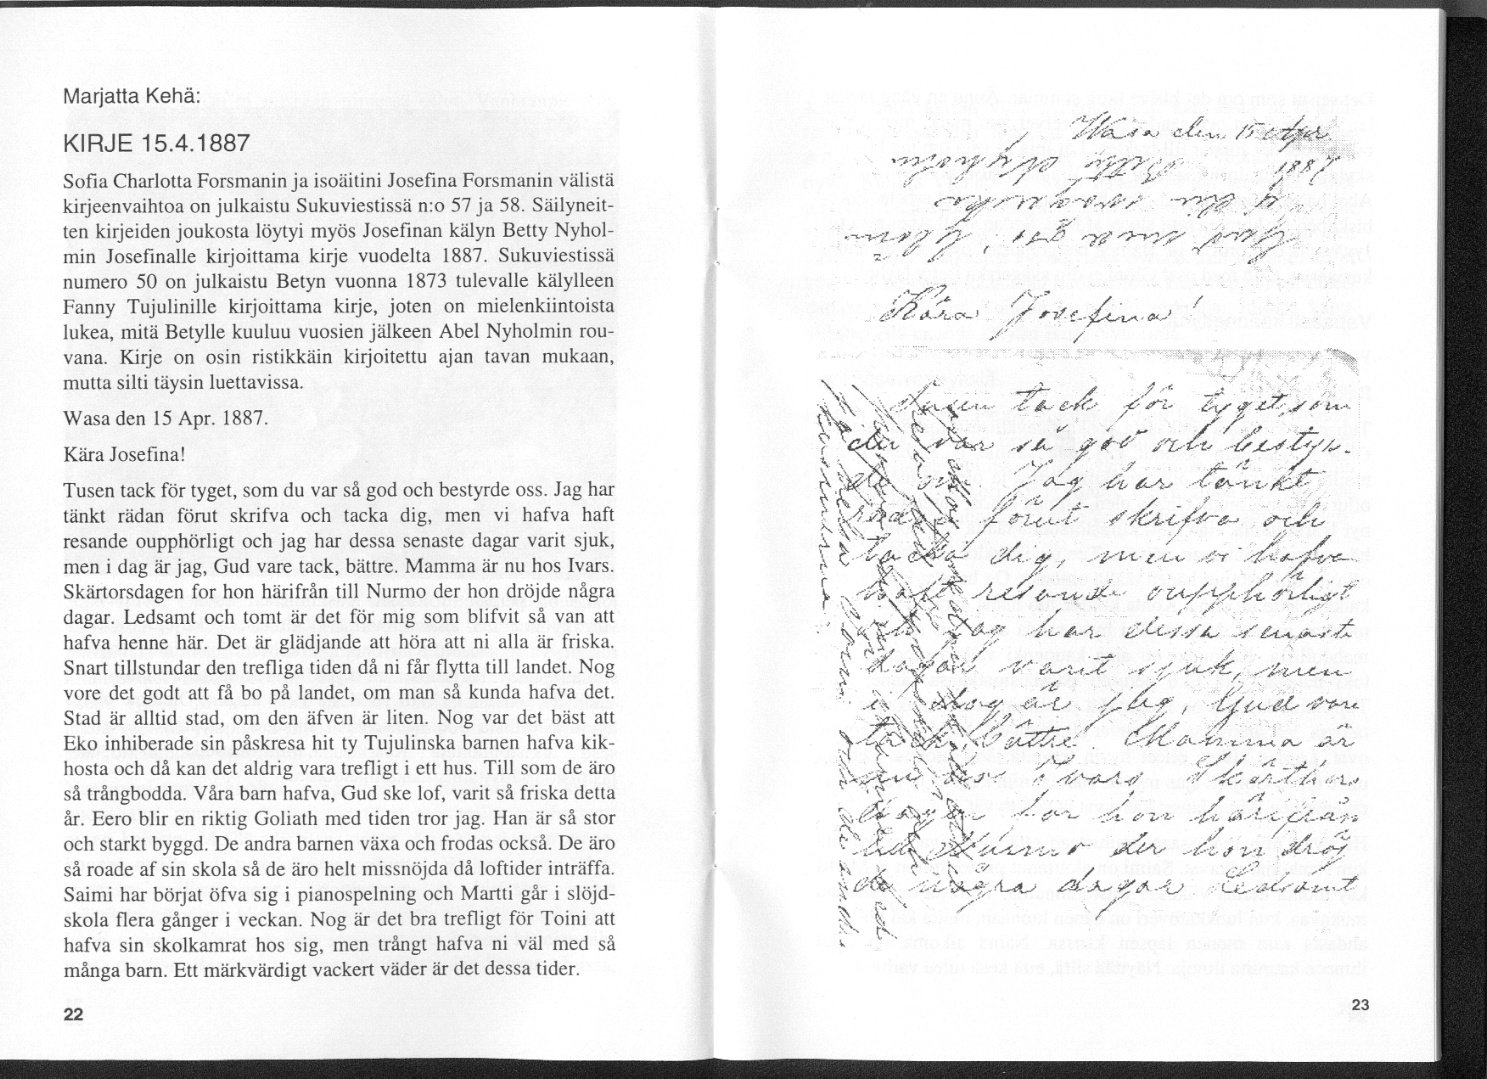 Marjatta Kehä:
KIRJE 15.4.1887
Sofia Charlotta Forsmanin ja isoäitini Josefina Forsmanin välistä
kirjeenvaihtoa on julkaistu Sukuviestissä n:o 57 ja 58. Säilyneit-
ten kirjeiden joukosta löytyi myös Josefinan kälyn Betty Nyhol-
min Josefinalle kirjoittama kirje vuodelta 1887. Sukuviestissä
numero 50 on julkaistu Betyn vuonna 1873 tulevalle kälylleen
Fanny Tujulinille kirjoittama kirje, joten on mielenkiintoista
lukea, mitä Betylle kuuluu vuosien jälkeen Abel Nyholmin rou-
vana. Kirje on osin ristikkäin kirjoitettu ajan tavan mukaan,
mutta silti täysin luettavissa.
Wasa den 15 Apr. 1887.
Kära Josefina!
Tusen tack för tyget, som du var så god och bestyrde oss. Jag har
tänkt rädan förut skrifva och tacka dig, men vi hafva haft
resande oupphörligt och jag har dessa senaste dagar varit sjuk,
men i dag är jag, Gud vare tack, bättre. Mamma är nu hos Ivars.
Skärtorsdagen for hon härifrån till Nurmo der hon dröjde några
dagar. Ledsamt och tomt är det för mig som blifvit så van att
hafva henne här. Det är glädjande att höra att ni alla är friska.
Snart tillstundar den trefliga tiden då ni får flytta till landet. Nog
vore det godt att få bo på landet, om man så kunda hafva det.
Stad är alltid stad, om den äfven är liten. Nog var det bäst att
Eko inhiberade sin påskresa hit ty Tujulinska barnen hafva kik-
hosta och då kan det aldrig vara trefligt i ett hus. Till som de äro
så trångbodda. Våra barn hafva, Gud ske lof, varit så friska detta
år. Eero blir en riktig Goliath med tiden tror jag. Han är så stor
och starkt byggd. De andra barnen växa och frodas också. De äro
så roade af sin skola så de äro helt missnöjda då loftider inträffa.
Saimi har börjat öfva sig i pianospelning och Martti går i slöjd-
skola flera gånger i veckan. Nog är det bra trefligt för Toini att
hafva sin skolkamrat hos sig, men trångt hafva ni väl med så
många barn. Ett märkvärdigt vackert väder är det dessa tider.
22
Wasa den 15 Apr.
1887.
Kära Josefina!
Tusen tack för tyget, som
du var så god och bestyr-
de oss. Jag har tänkt
rädan förut skrifva och
tacka dig, men vi hafva
haft resande oupphörligt
och jag har dessa senaste
dagar varit sjuk, men
i dag är jag, Gud vare
tack, bättre. Mamma är
nu hos Ivars. Skärtors
dagen for hon härifrån
till Nurmo der hon dröj
de några dagar. Ledsamt
23